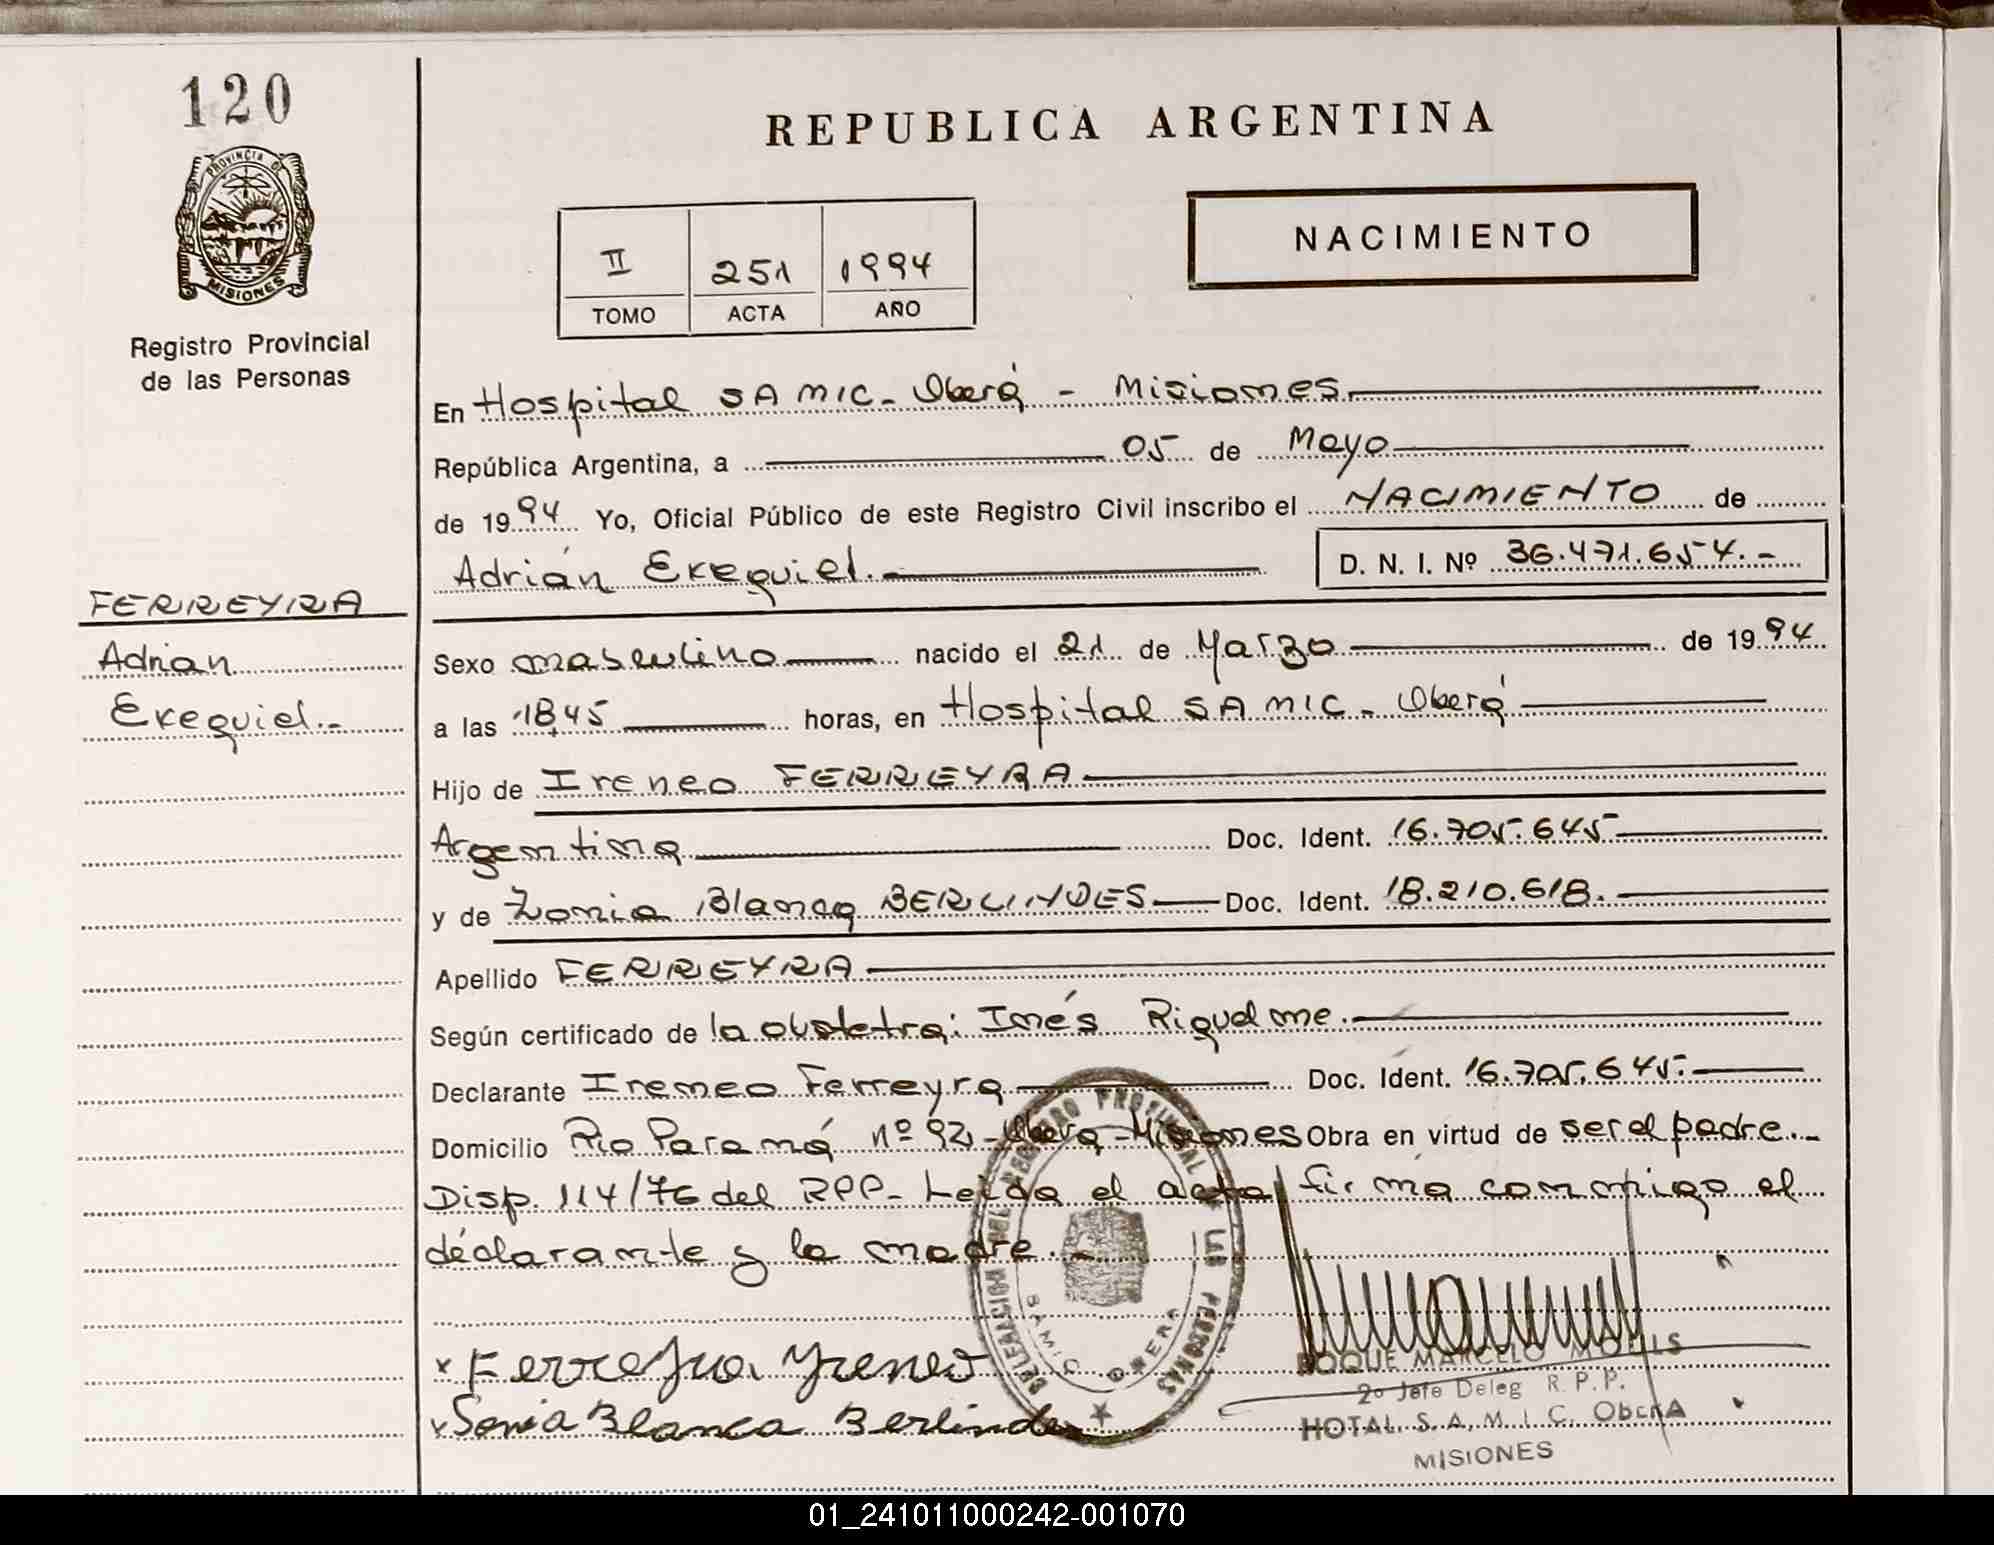 120
REPUBLICA ARGENTINA
PROVINCIA DE
MISIONES
NACIMIENTO
II 251 1994
TOMO ACTA AÑO
Registro Provincial
de las Personas
En Hospital SAMIC - Oberá - Misiones
República Argentina, a 05 de Mayo
de 1994 Yo, Oficial Público de este Registro Civil inscribo el NACIMIENTO de
Adrián Exequiel.- D. N. I. Nº 36.471.654.-
FERREYRA
Adrian
Exequiel.-
Sexo masculino nacido el 21 de Marzo de 1994
a las 18,45 horas, en Hospital SAMIC - Oberá
Hijo de Ireneo FERREYRA
Argentina Doc. Ident. 16.705.645
y de Zonia Blanca BERLINDES Doc. Ident. 18.210.618.
Apellido FERREYRA
Según certificado de la obstetra: Inés Riquelme.
Declarante Ireneo Ferreyra Doc. Ident. 16.705.645.
Domicilio Rio Paraná nº 92 - Oberá - Misiones Obra en virtud de ser el padre.-
Disp. 114/76 del RPP- Leída el acta firma conmigo el
declarante y la madre.-
DELEGACION DEL REGISTRO PROVINCIAL DE LAS PERSONAS
SAMIC OBERA
x Ferreyra Yreneo
x Sonia Blanca Berlindes
ROQUE MARCELO
2º Jefe Deleg R. P. P.
HOTAL S. A. M. I. C. ObeRA
MISIONES
01_241011000242-001070